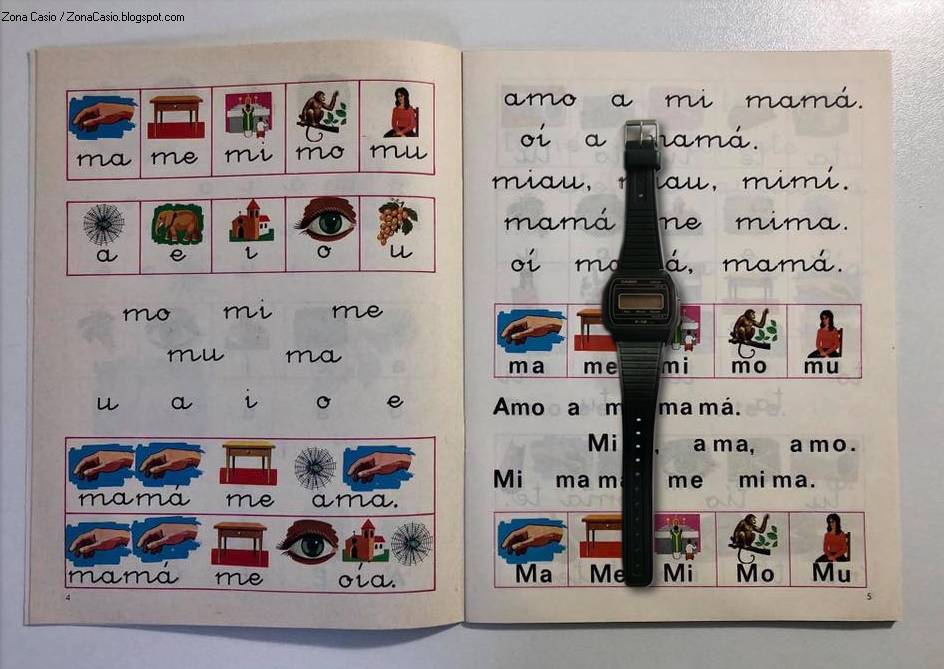 Zona Casio / ZonaCasio.blogspot.com
ma me mi mo mu
a e i o u
mo mi me
mu ma
u a i o e
mamá me ama.
mamá me oía.
4
amo a mi mamá.
oí a mamá.
miau, miau, mimí.
mamá me mima.
oí mamá, mamá.
CASIO
ma me mi mo mu
Amo a mi mamá.
Mi , ama, amo.
Mi mamá me mima.
Ma Me Mi Mo Mu
5